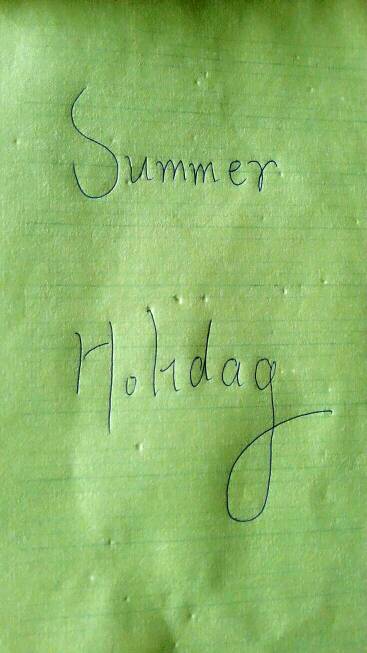 Summer
Holiday